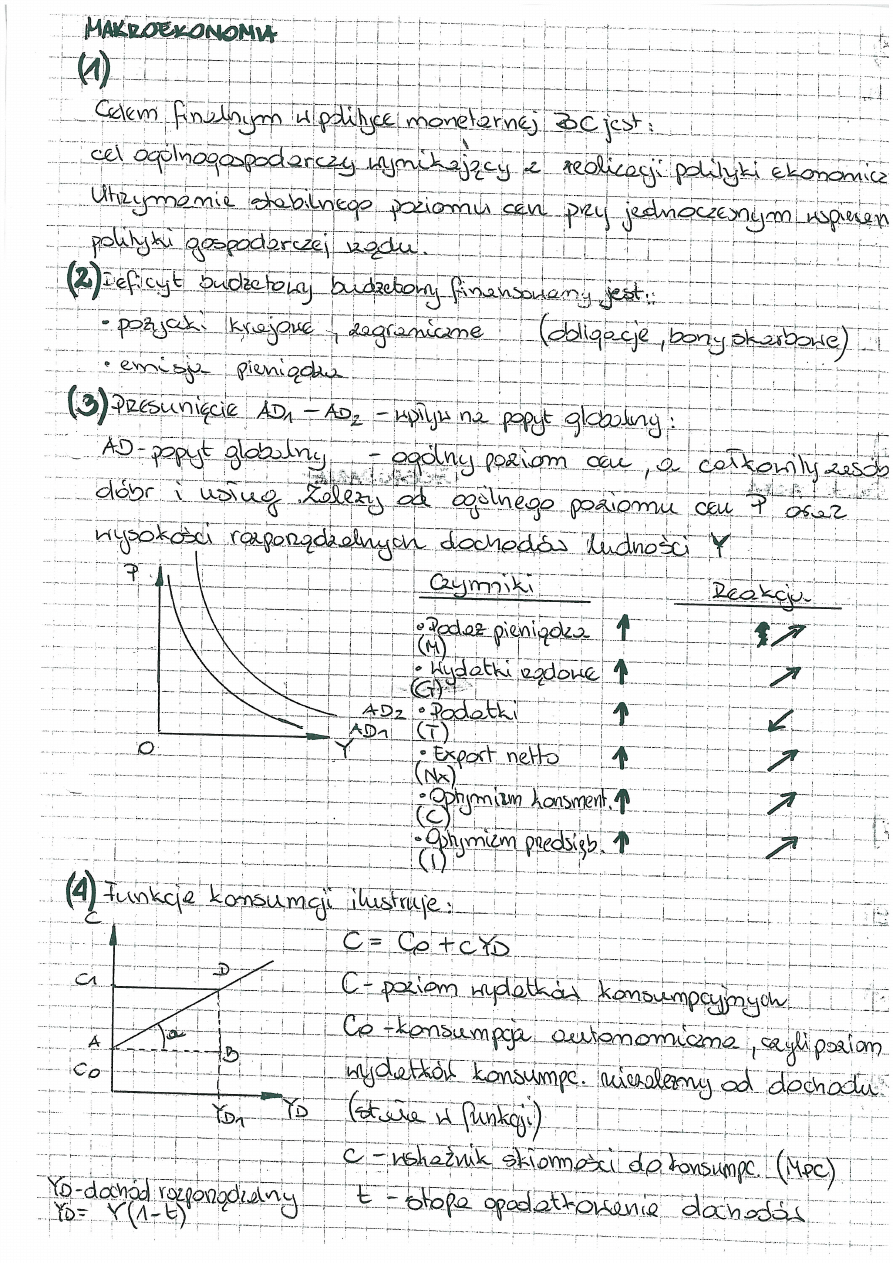 MAKROEKONOMIA
(1)
Celem finalnym w polityce monetarnej BC jest:
cel ogólnogospodarczy wynikający z realizacji polityki ekonomicz
Utrzymanie stabilnego poziomu cen przy jednoczesnym wspieran
polityki gospodarczej rządu.
(2) Deficyt budżetowy budżetowy finansowany jest:
• pożyczki krajowe, zagraniczne (obligacje, bony skarbowe)
• emisja pieniądza
(3) Przesunięcie AD1 – AD2 – wpływ na popyt globalny:
AD - popyt globalny – ogólny poziom cen, a całkowity zasób
dóbr i usług. Zależy od ogólnego poziomu cen P oraz
wysokości rozporządzalnych dochodów ludności Y
P
AD2
AD1
O
Y
Czynniki Reakcja
• Podaż pieniądza ↑ ↗
(M)
• Wydatki rządowe ↑ ↗
(G)
• Podatki ↑ ↙
(T)
• Export netto ↑ ↗
(Nx)
• Optymizm konsument. ↑ ↗
(C)
• Optymizm przedsięb. ↑ ↗
(I)
(4) Funkcje konsumcji ilustruje:
C
C1
D
A
α
B
C0
YD1
YD
C = C0 + cYD
C - poziom wydatków konsumpcyjnych
C0 - konsumpcja autonomiczna, czyli poziom
wydatków konsumpc. niezależny od dochodu
(stałe w funkcji)
c - wskaźnik skłonności do konsumpc. (MPC)
t - stopa opodatkowania dochodów
YD - dochód rozporządzalny
YD = Y(1-t)